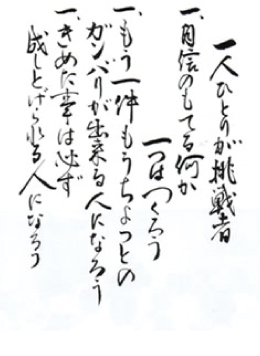 一人ひとりが挑戦者
一、自信のもてる何か
一つはつくろう
一、もう一件もうちょっとの
ガンバリが出来る人になろう
一、きめた事は必ず
成しとげられる人になろう